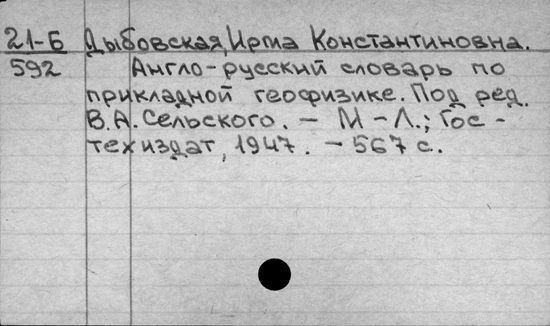 21-Б Дыбовская, Ирма Константиновна.
592 Англо-русский словарь по
прикладной геофизике. Под ред.
В.А. Сельского. – М-Л.; Гос-
техиздат, 1947. – 567 с.